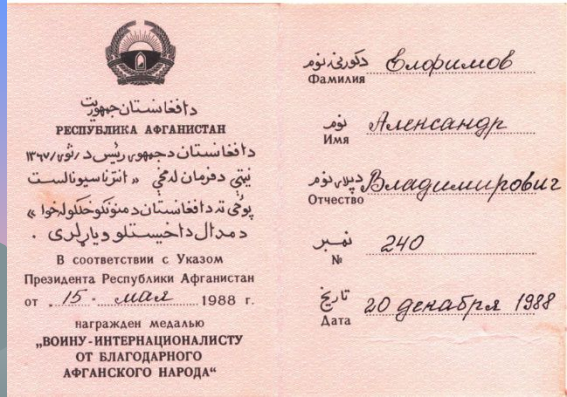 دافغانستان جمهوریت
РЕСПУБЛИКА АФГАНИСТАН
دافغانستان دجمهوررئیس د /ثور/۱۳۶۷
نیټې دفرمان له مخې « انترناسیونالست
پوځی ته دافغانستان دمنونکوخلکولخوا »
دمدال داخیستلو ویاړلری .
В соответствии с Указом
Президента Республики Афганистан
от 15. мая 1988 г.
награжден медалью
„ВОИНУ-ИНТЕРНАЦИОНАЛИСТУ
ОТ БЛАГОДАРНОГО
АФГАНСКОГО НАРОДА“
دکورنۍ نوم
Фамилия Елфимов
نوم
Имя Александр
دپلار نوم
Отчество Владимирович
نمبر
№ 240
تاریخ
Дата 20 декабря 1988